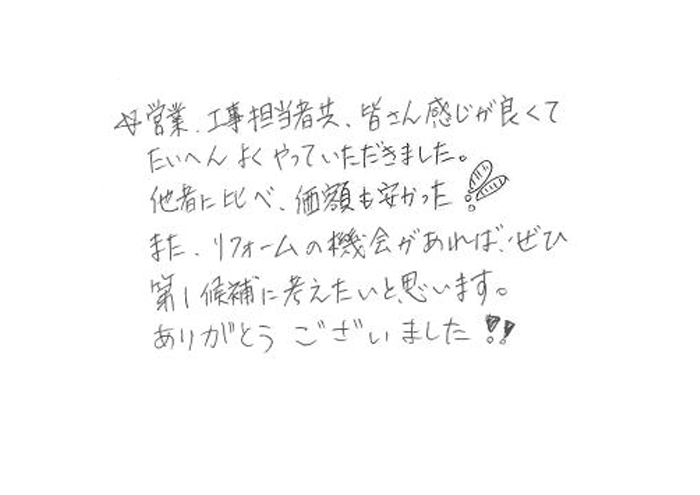 ☆営業、工事担当者共、皆さん感じが良くて
たいへん よく やっていただきました。
他者に比べ、価額も安かった!!
また、リフォームの機会があれば、ぜひ
第1候補に考えたいと思います。
ありがとう ございました!!